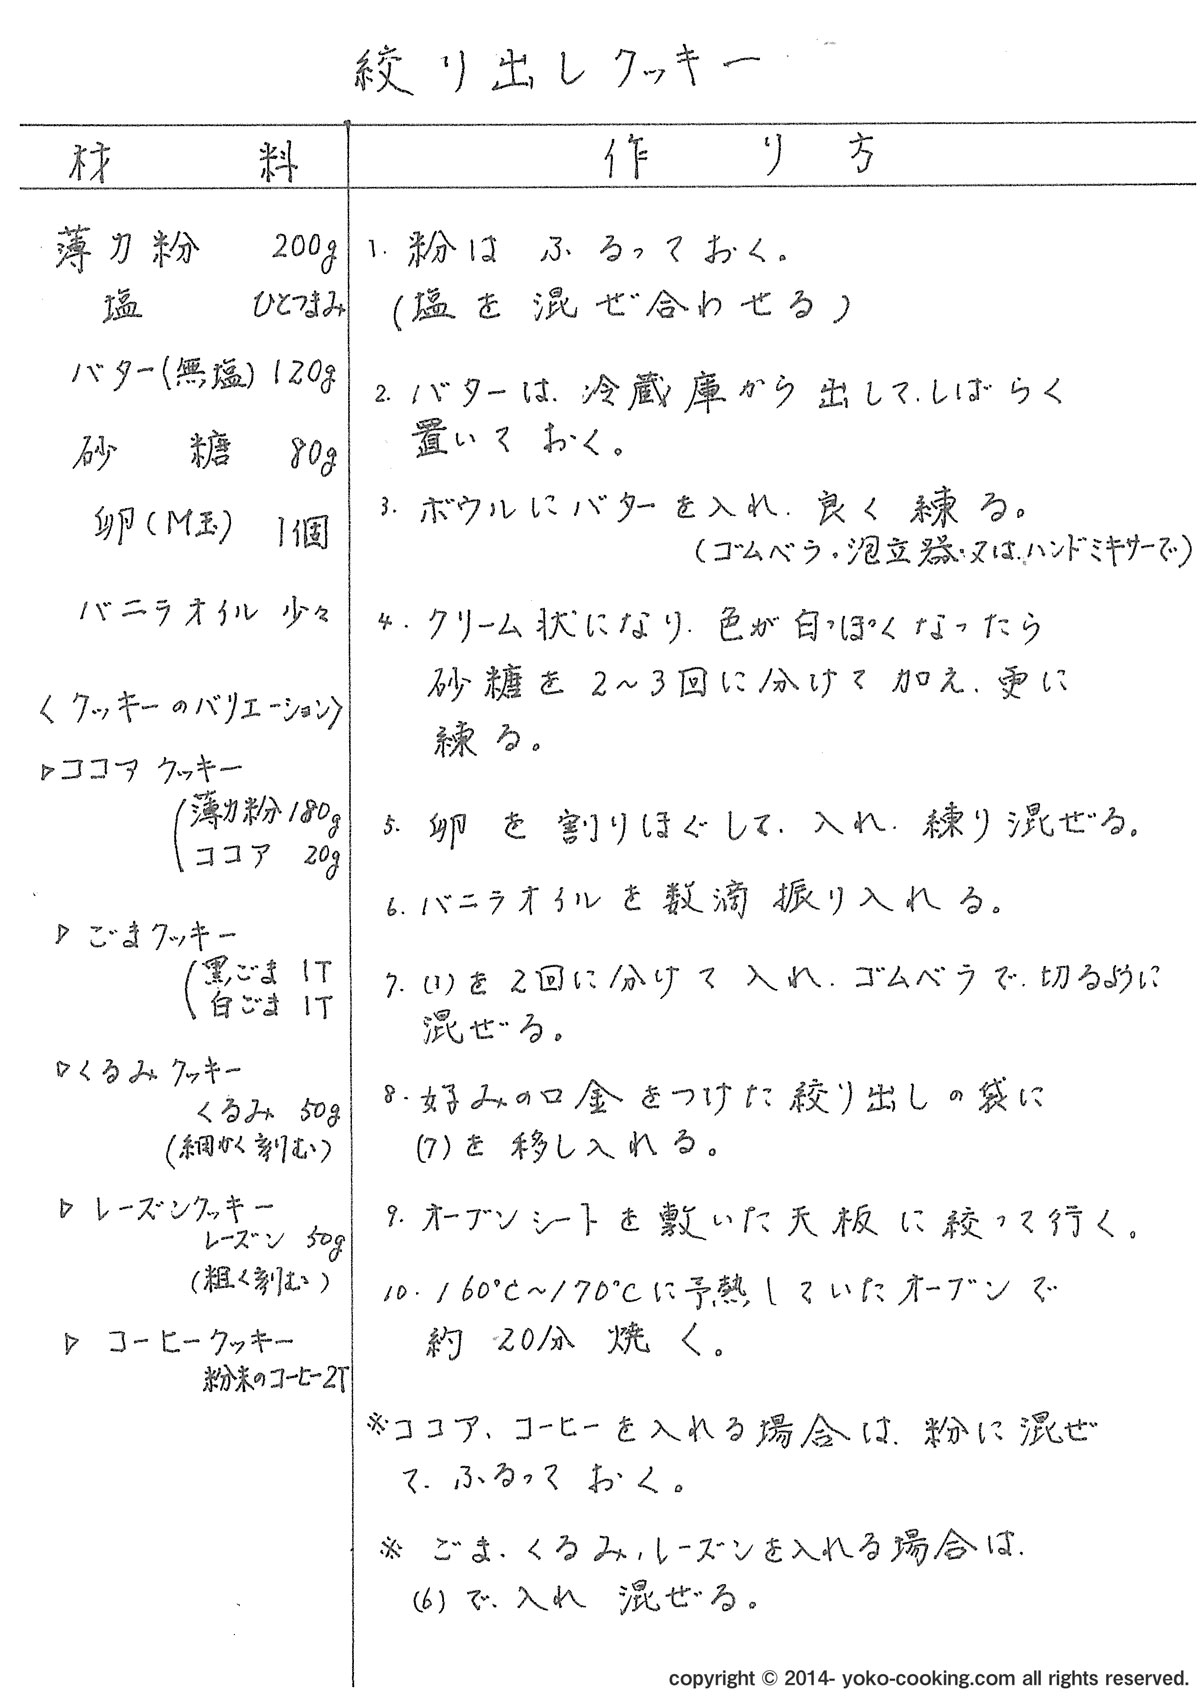 絞り出しクッキー
材料
作り方
薄力粉 200g
塩 ひとつまみ
バター(無塩) 120g
砂糖 80g
卵(M玉) 1個
バニラオイル 少々
〈クッキーのバリエーション〉
▷ココアクッキー
薄力粉 180g
ココア 20g
▷ごまクッキー
黒ごま 1T
白ごま 1T
▷くるみクッキー
くるみ 50g
(細かく刻む)
▷レーズンクッキー
レーズン 50g
(粗く刻む)
▷コーヒークッキー
粉末のコーヒー2T
1. 粉は ふるっておく。
(塩を混ぜ合わせる)
2. バターは、冷蔵庫から出して、しばらく
置いておく。
3. ボウルにバターを入れ、良く練る。
(ゴムベラ・泡立器・又は、ハンドミキサーで)
4. クリーム状になり、色が白っぽくなったら
砂糖を2〜3回に分けて加え、更に
練る。
5. 卵を割りほぐして、入れ、練り混ぜる。
6. バニラオイルを数滴振り入れる。
7. (1)を2回に分けて入れ、ゴムベラで、切るように
混ぜる。
8. 好みの口金をつけた絞り出しの袋に
(7)を移し入れる。
9. オーブンシートを敷いた天板に絞って行く。
10. 160℃〜170℃に予熱していたオーブンで
約20分焼く。
※ココア、コーヒーを入れる場合は、粉に混ぜ
て、ふるっておく。
※ごま、くるみ、レーズンを入れる場合は、
(6)で、入れ混ぜる。
copyright © 2014- yoko-cooking.com all rights reserved.